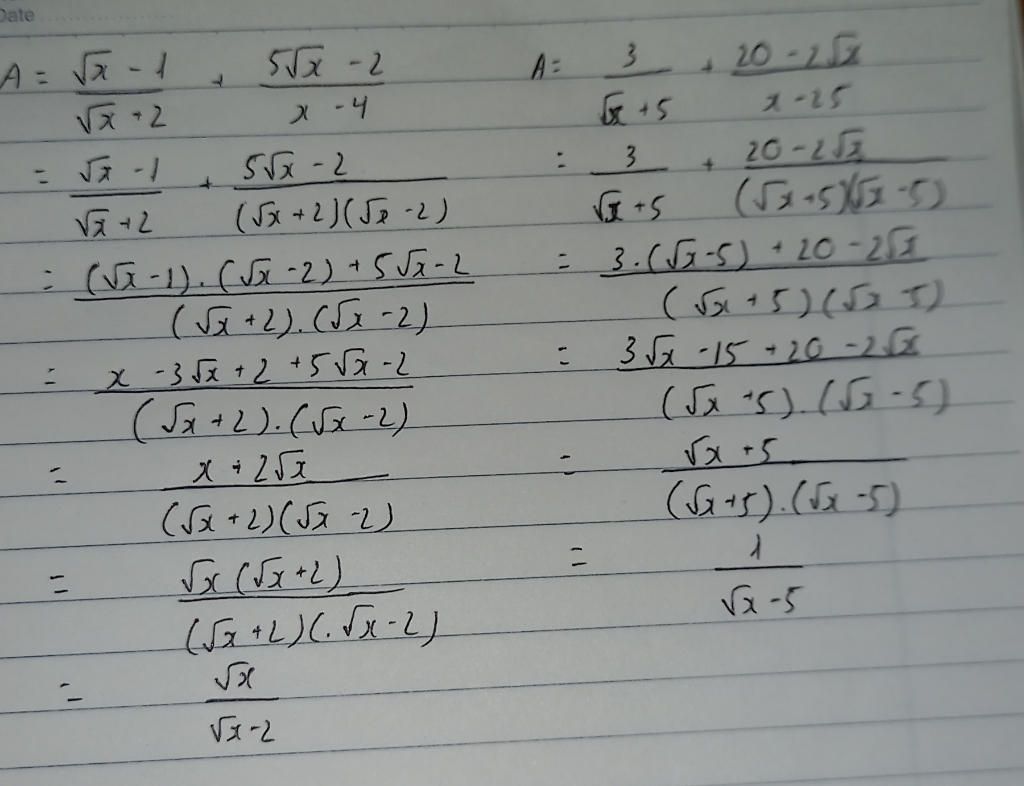 Date
A = (√x - 1)/(√x + 2) + (5√x - 2)/(x - 4)
= (√x - 1)/(√x + 2) + (5√x - 2)/((√x + 2)(√x - 2))
= ((√x - 1).(√x - 2) + 5√x - 2)/((√x + 2).(√x - 2))
= (x - 3√x + 2 + 5√x - 2)/((√x + 2).(√x - 2))
= (x + 2√x)/((√x + 2)(√x - 2))
= (√x(√x + 2))/((√x + 2)(.√x - 2))
= √x/(√x - 2)
A = 3/(√x + 5) + (20 - 2√x)/(x - 25)
= 3/(√x + 5) + (20 - 2√x)/((√x + 5)(√x - 5))
= (3.(√x - 5) + 20 - 2√x)/((√x + 5)(√x - 5))
= (3√x - 15 + 20 - 2√x)/((√x + 5).(√x - 5))
= (√x + 5)/((√x + 5).(√x - 5))
= 1/(√x - 5)